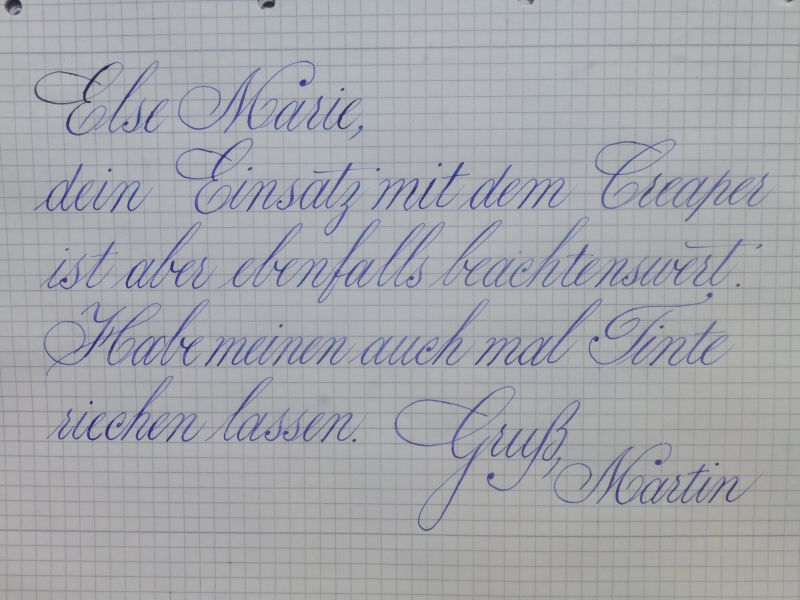 Else Marie,
dein Einsatz mit dem Creaper
ist aber ebenfalls beachtenswert.
Habe meinen auch mal Tinte
riechen lassen. Gruß,
Martin